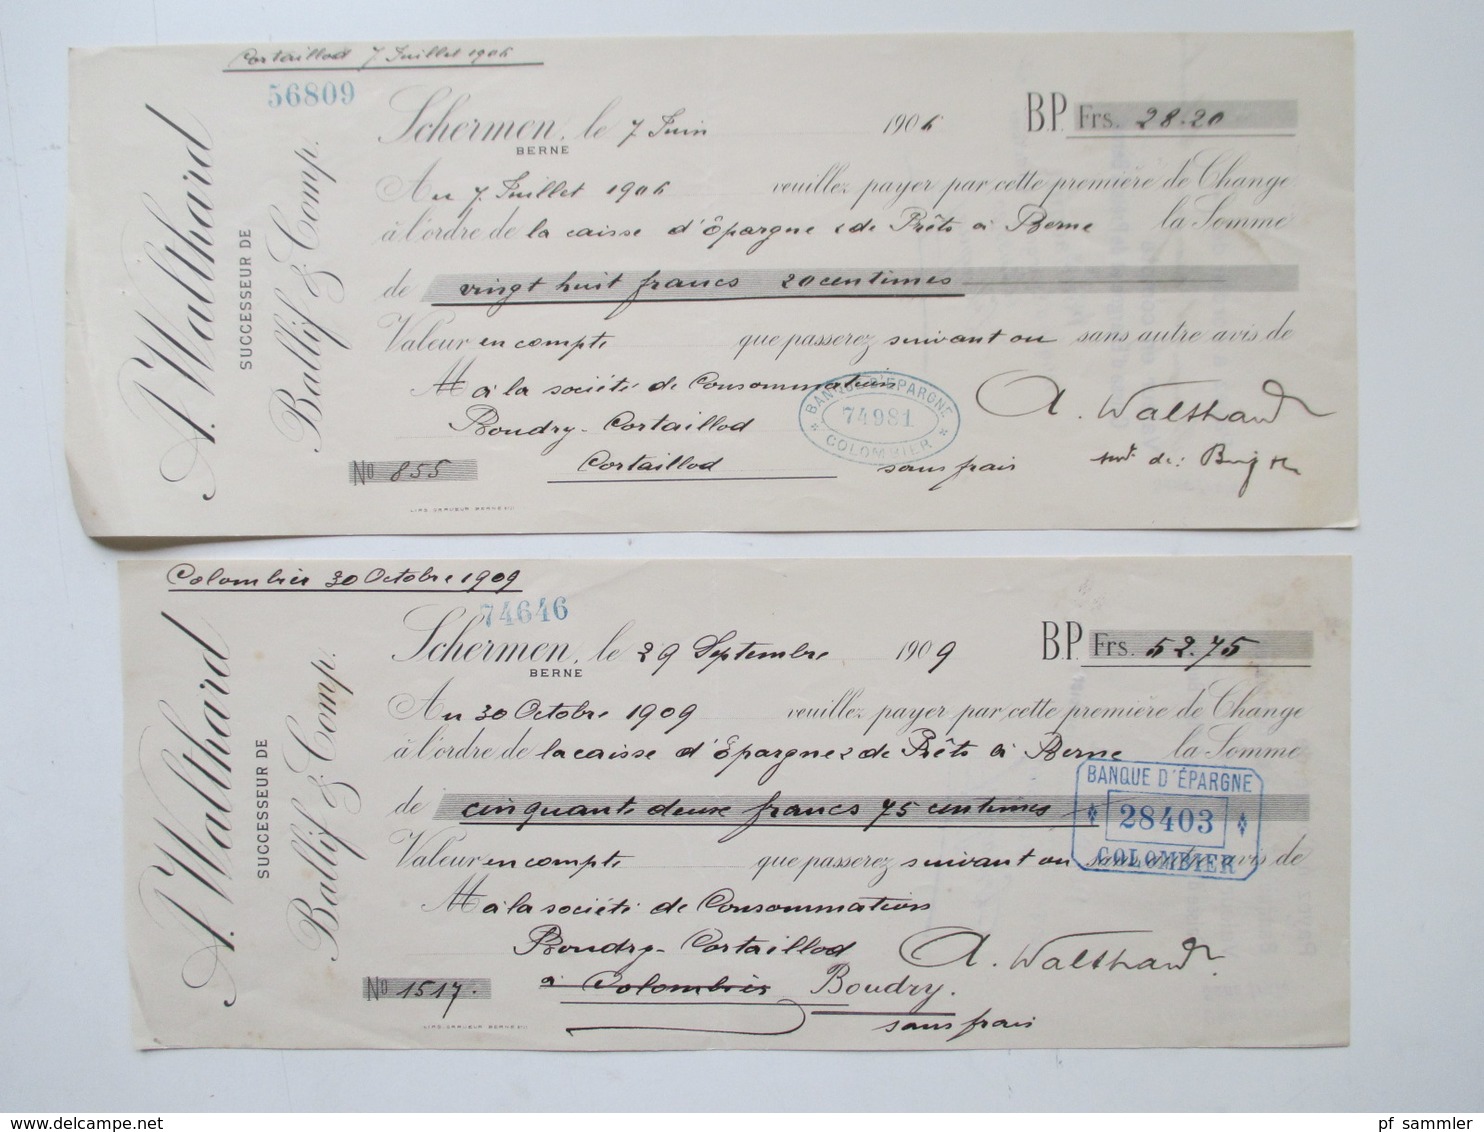 Cortaillod 7 Juillet 1906
56809
A. Walthard
SUCCESSEUR DE
Ballif & Comp.
Schermen, le 7 Juin 1906 B.P. Frs. 28.20
BERNE
Au 7 Juillet 1906 veuillez payer par cette première de Change
à l'ordre de la caisse d'Épargne & de Prêts à Berne la Somme
de vingt huit francs 20 centimes
Valeur en compte que passerez suivant ou sans autre avis de
M à la société de Consommation
Boudry-Cortaillod
Cortaillod
sans frais
BANQUE D'ÉPARGNE
74981
COLOMBIER
A. Walthard
No 855
Colombier 30 Octobre 1909
74646
A. Walthard
SUCCESSEUR DE
Ballif & Comp.
Schermen, le 29 Septembre 1909 B.P. Frs. 52.75
BERNE
Au 30 Octobre 1909 veuillez payer par cette première de Change
à l'ordre de la caisse d'Épargne & de Prêts à Berne la Somme
de cinquante deux francs 75 centimes
Valeur en compte que passerez suivant ou sans autre avis de
BANQUE D'ÉPARGNE
28403
COLOMBIER
M à la société de Consommation
Boudry-Cortaillod
à Colombier Boudry.
sans frais
A. Walthard
No 1517.
pf_sammler